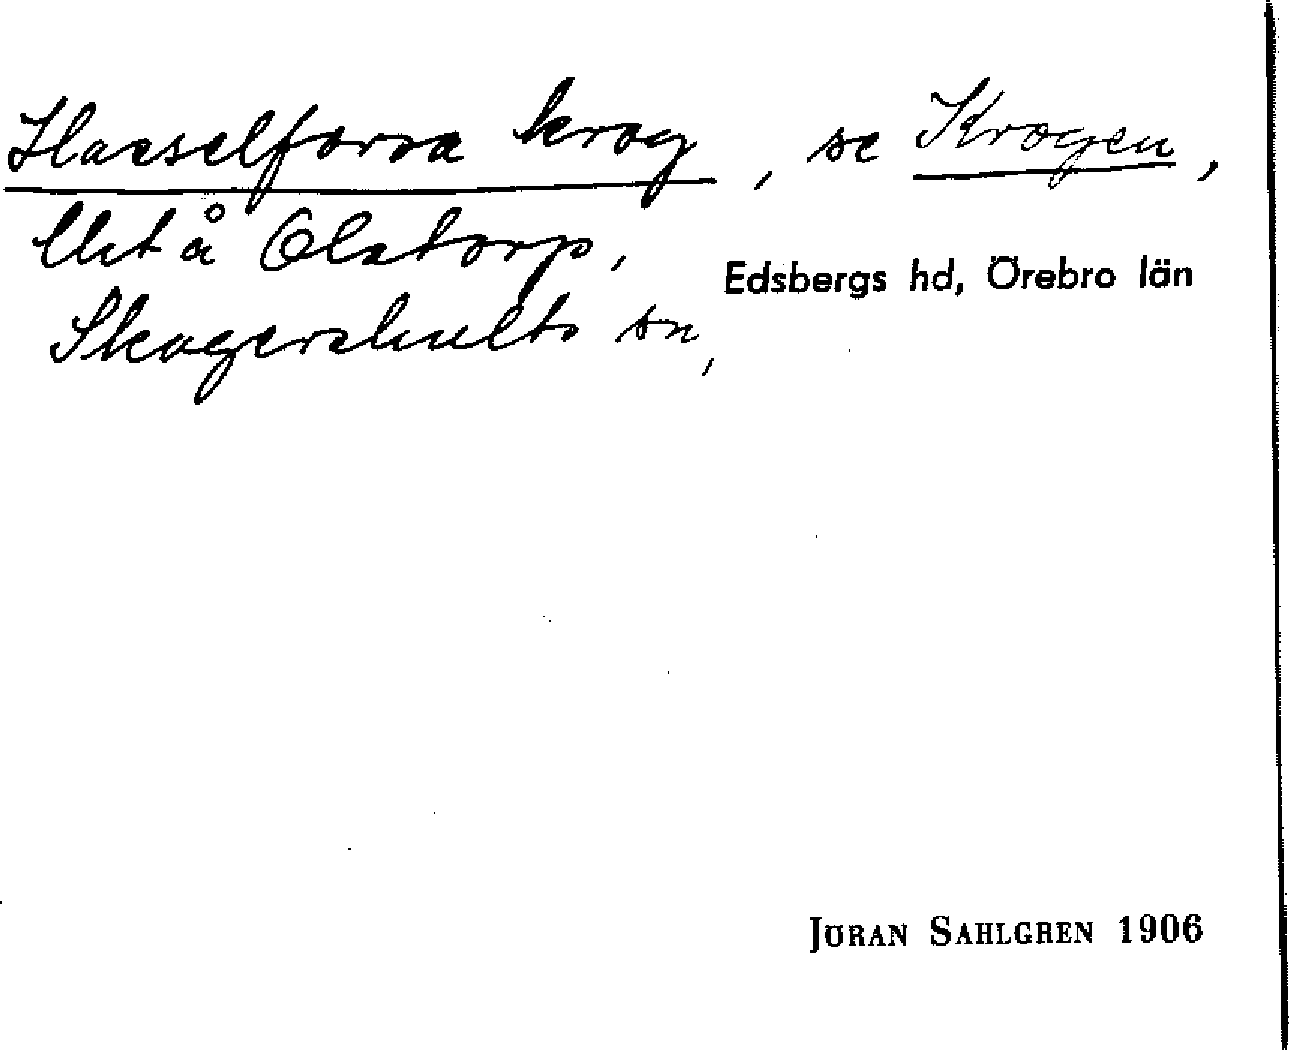 Hasselforsa krog, se Krogen,
Utå Olstorp,
Edsbergs hd, Örebro län
Skagershults sn,
JÖRAN SAHLGREN 1906